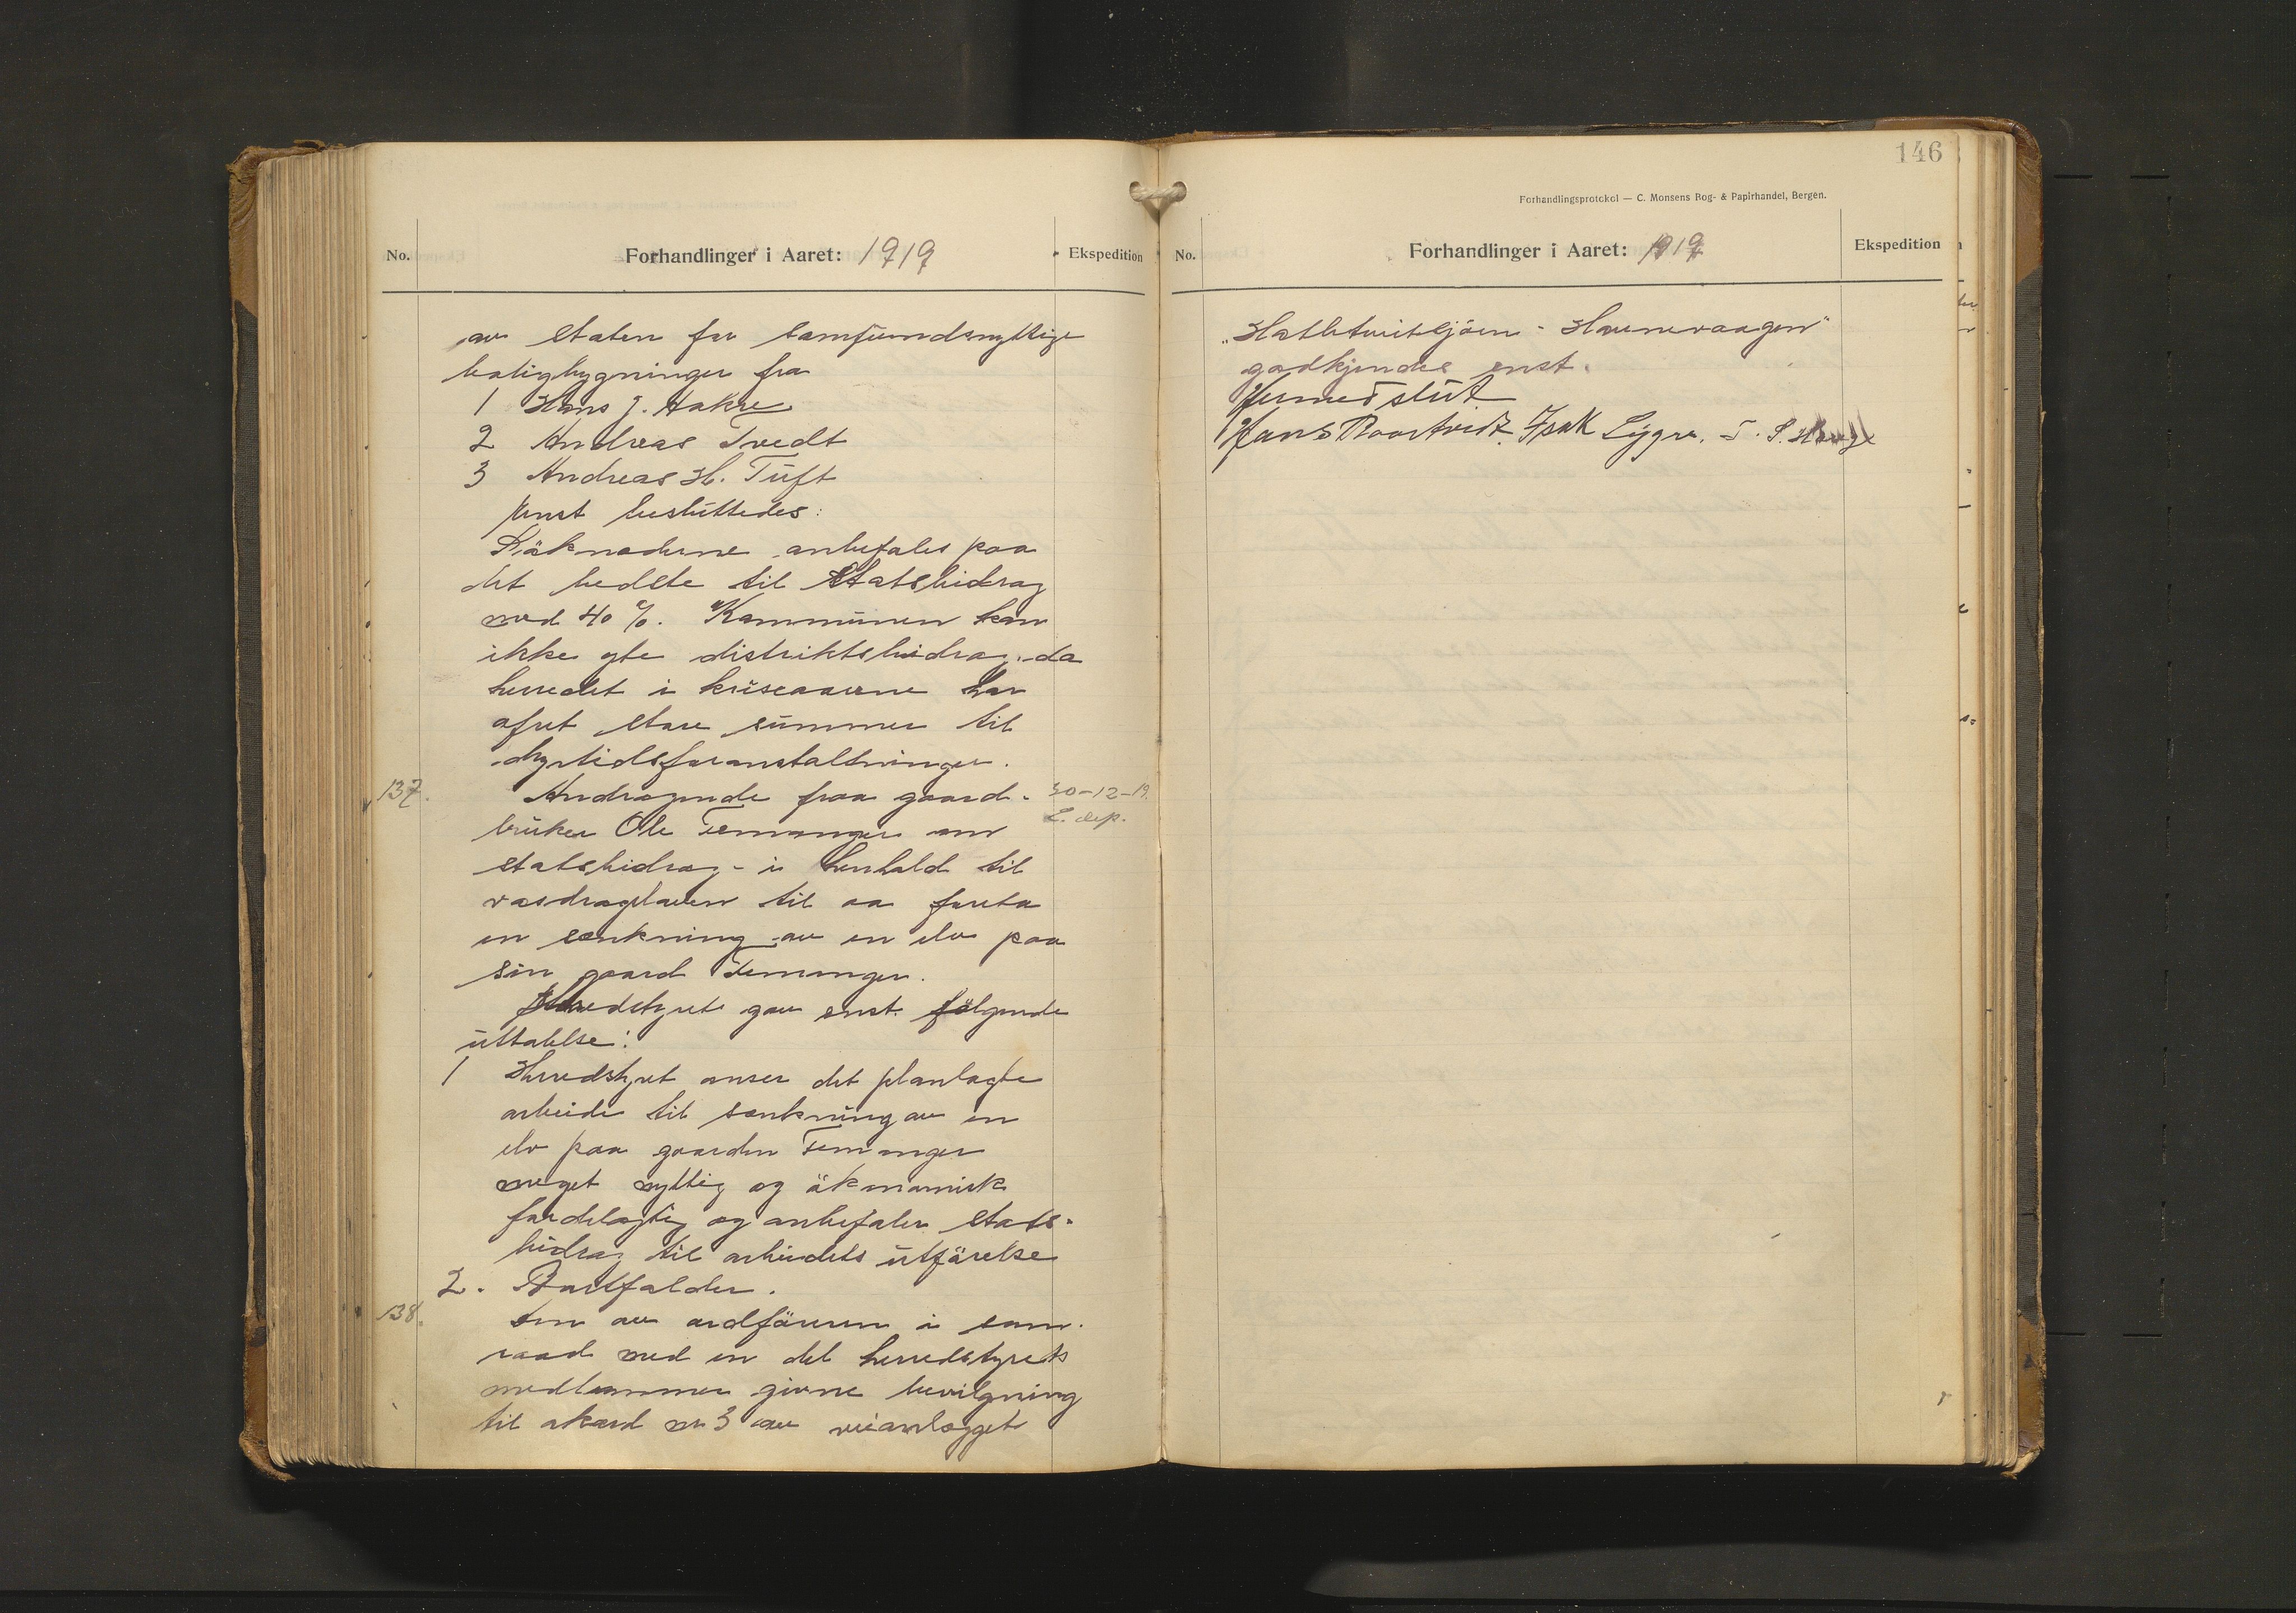 No.
Forhandlinger i Aaret: 1919
Ekspedition
av staten for samfundsnyttige
boligbygninger fra
1 Hans J. Aakre
2 Andreas Tvedt
3 Andreas H. Tuft
Enst besluttedes:
Söknaderne anbefales paa
det bedste til Statsbidrag
med 40 %. Kommunen kan
ikke yte distriktsbidrag, da
herredet i kriseaarene har
ofret store summer til
dyrtidsforanstaltninger.
137. Andragende fraa gaard-
30-12-19.
L. dep.
bruker Ole Femanger om
statsbidrag - i henhold til
vasdragsloven til aa foreta
en sænkning av en elv paa
sin gaard Femanger.
Herredstyret gav enst. følgende
uttalelse:
1 Herredstyret anser det planlagte
arbeide til sænkning av en
elv paa gaarden Femanger
meget nyttig og ökonomisk
fordelagtig og anbefaler stats-
bidrag til arbeidets utförelse
2. Bortfalder.
138. Den av ordföreren i sam-
raad med en del herredstyrets
medlemmer givne bevilgning
til akord nr 3 av veianlægget
146
Forhandlingsprotokol — C. Monsens Bog- & Papirhandel, Bergen.
No.
Forhandlinger i Aaret: 1919
Ekspedition
"Hathvitsjöen - Havnevaagen"
godkjendes enst.
Hermed slut
Hans Isak Lygre. T. S. Hauge